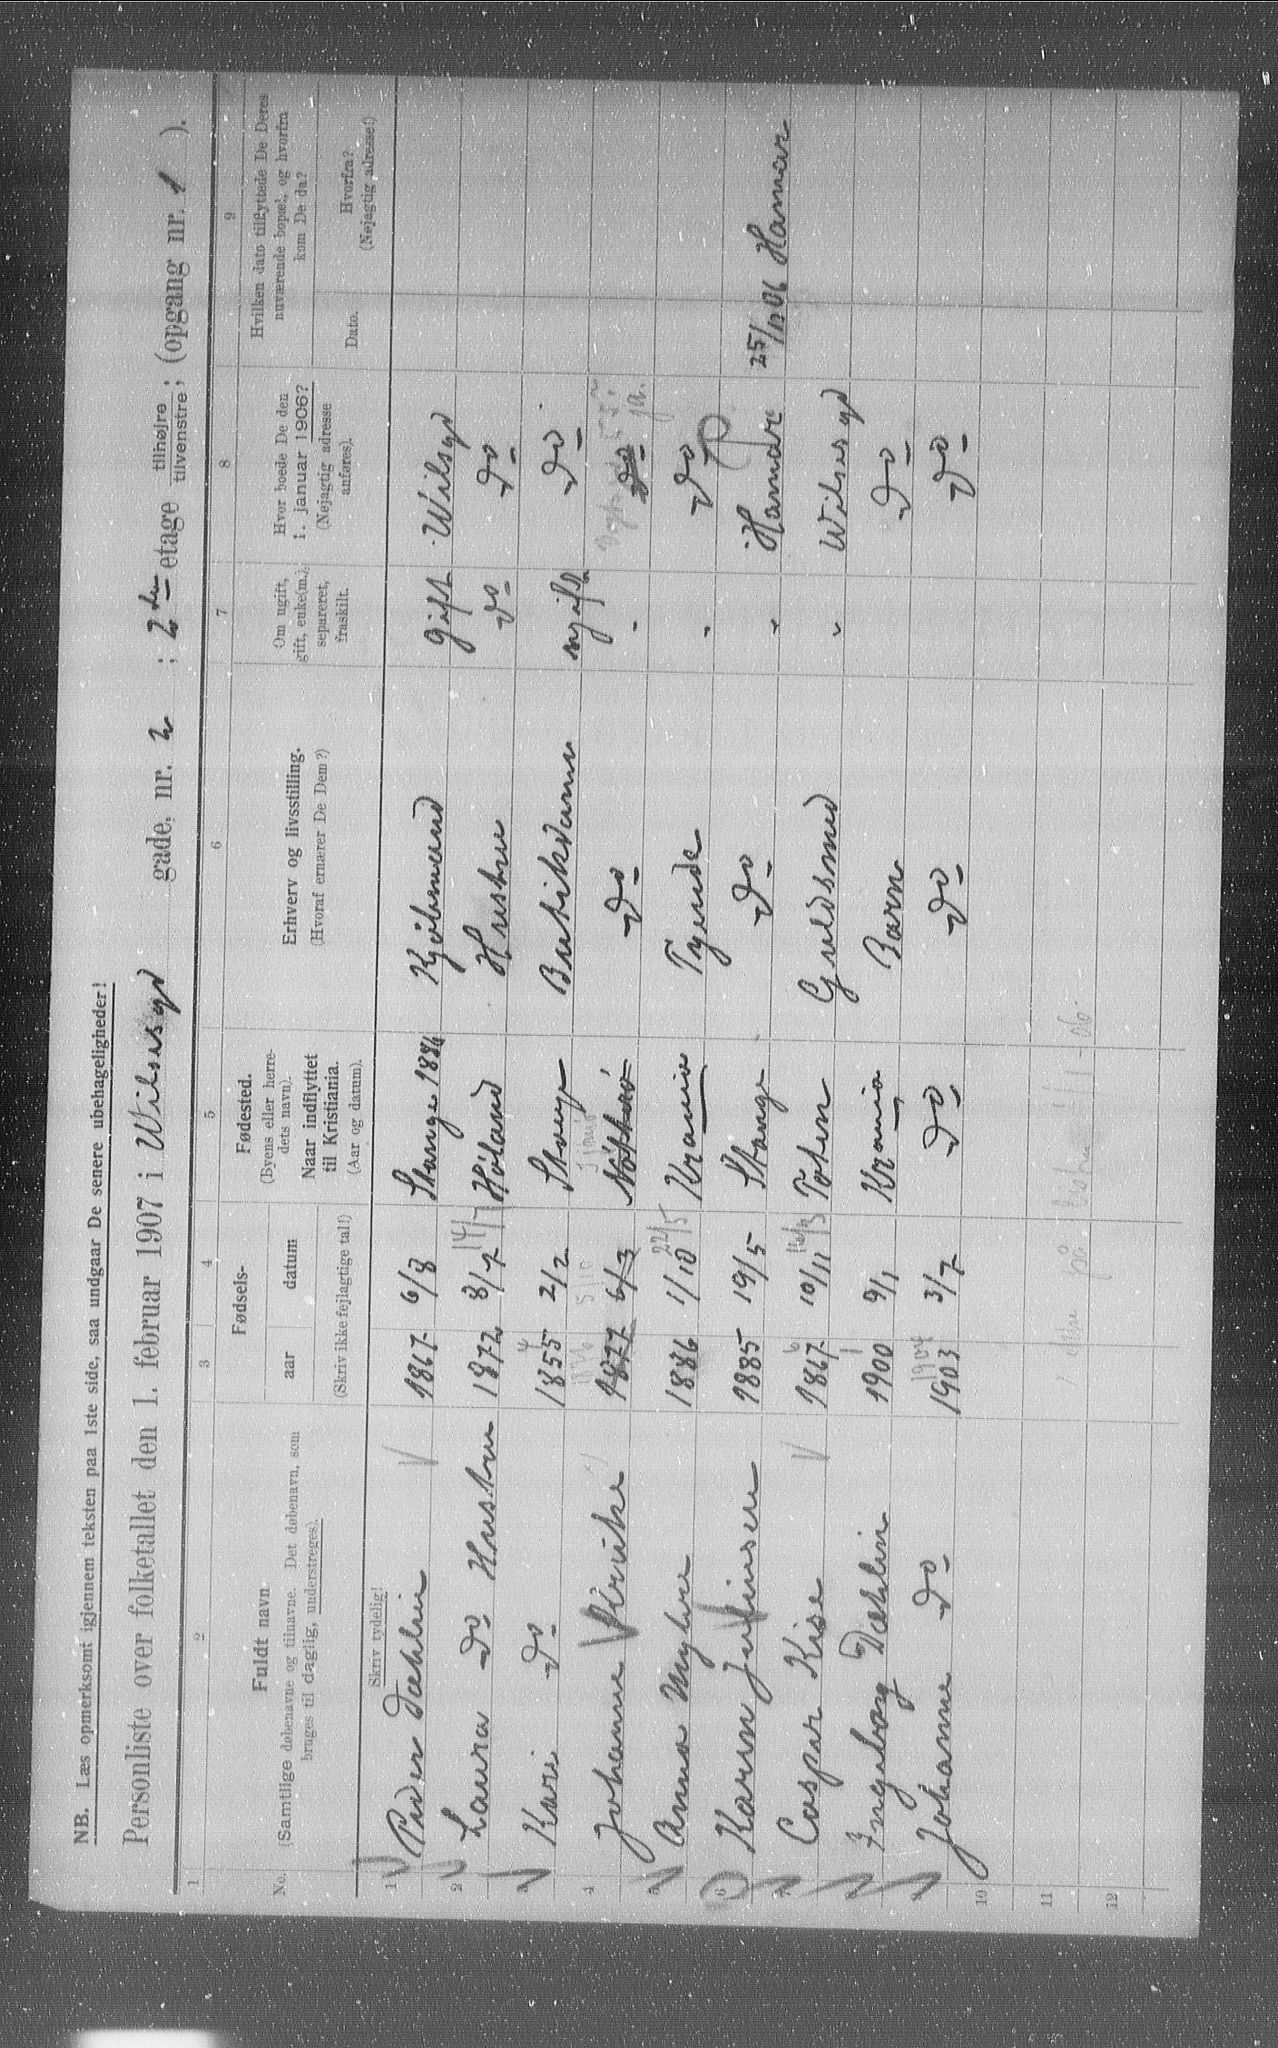 NB. Læs opmerksomt igjennem teksten paa 1ste side, saa undgaar De senere ubehageligheder!
Personliste over folketallet den 1. februar 1907 i Wilsesgd gade, nr. 2 ; 2den etage tilhøjre tilvenstre; (opgang nr. 1 ).
1 2 3 4 5 6 7 8 9
No. Fuldt navn (Samtlige døbenavne og tilnavne. Det døbenavn, som bruges til daglig, understreges). Fødsels- aar datum Fødested. (Byens eller herredets navn). Naar indflyttet til Kristiania. (Aar og datum). Erhverv og livsstilling. (Hvoraf ernærer De Dem?) Om ugift, gift, enke(m.), separeret, fraskilt. Hvor boede De den 1. januar 1906? (Nøjagtig adresse anføres). Hvilken dato tilflyttede De Deres nuværende bopæl, og hvorfra kom De da?
Skriv tydelig! (Skriv ikke fejlagtige tal!) Dato. Hvorfra? (Nøjagtig adresse!)
1 Peder Dæhlin 1867 6/8 Stange 1886 Kjøbmand gift Wilsegd
2 Laura do Hustru 1872 8/7 14/7 Høland Hustru do do
3 Kari do 1855 2/2 Stange Butikdame ugift do
4 Johanne 1877 6/3 5/10 do - do ja.
5 Anna Myhre 1886 1/10 22/5 Krania Tyende - do
6 Karen Juliusen 1885 19/5 Stange do " Hamar 25/12 06 Hamar
7 Caspar Kise 1867 10/11 Toten Guldsmed " Wilsesgd
8 Ingeborg Dæhlin 1900 9/1 Krania Barn do
9 Johanne do 1903 1904 3/7 do do do
10
11
12